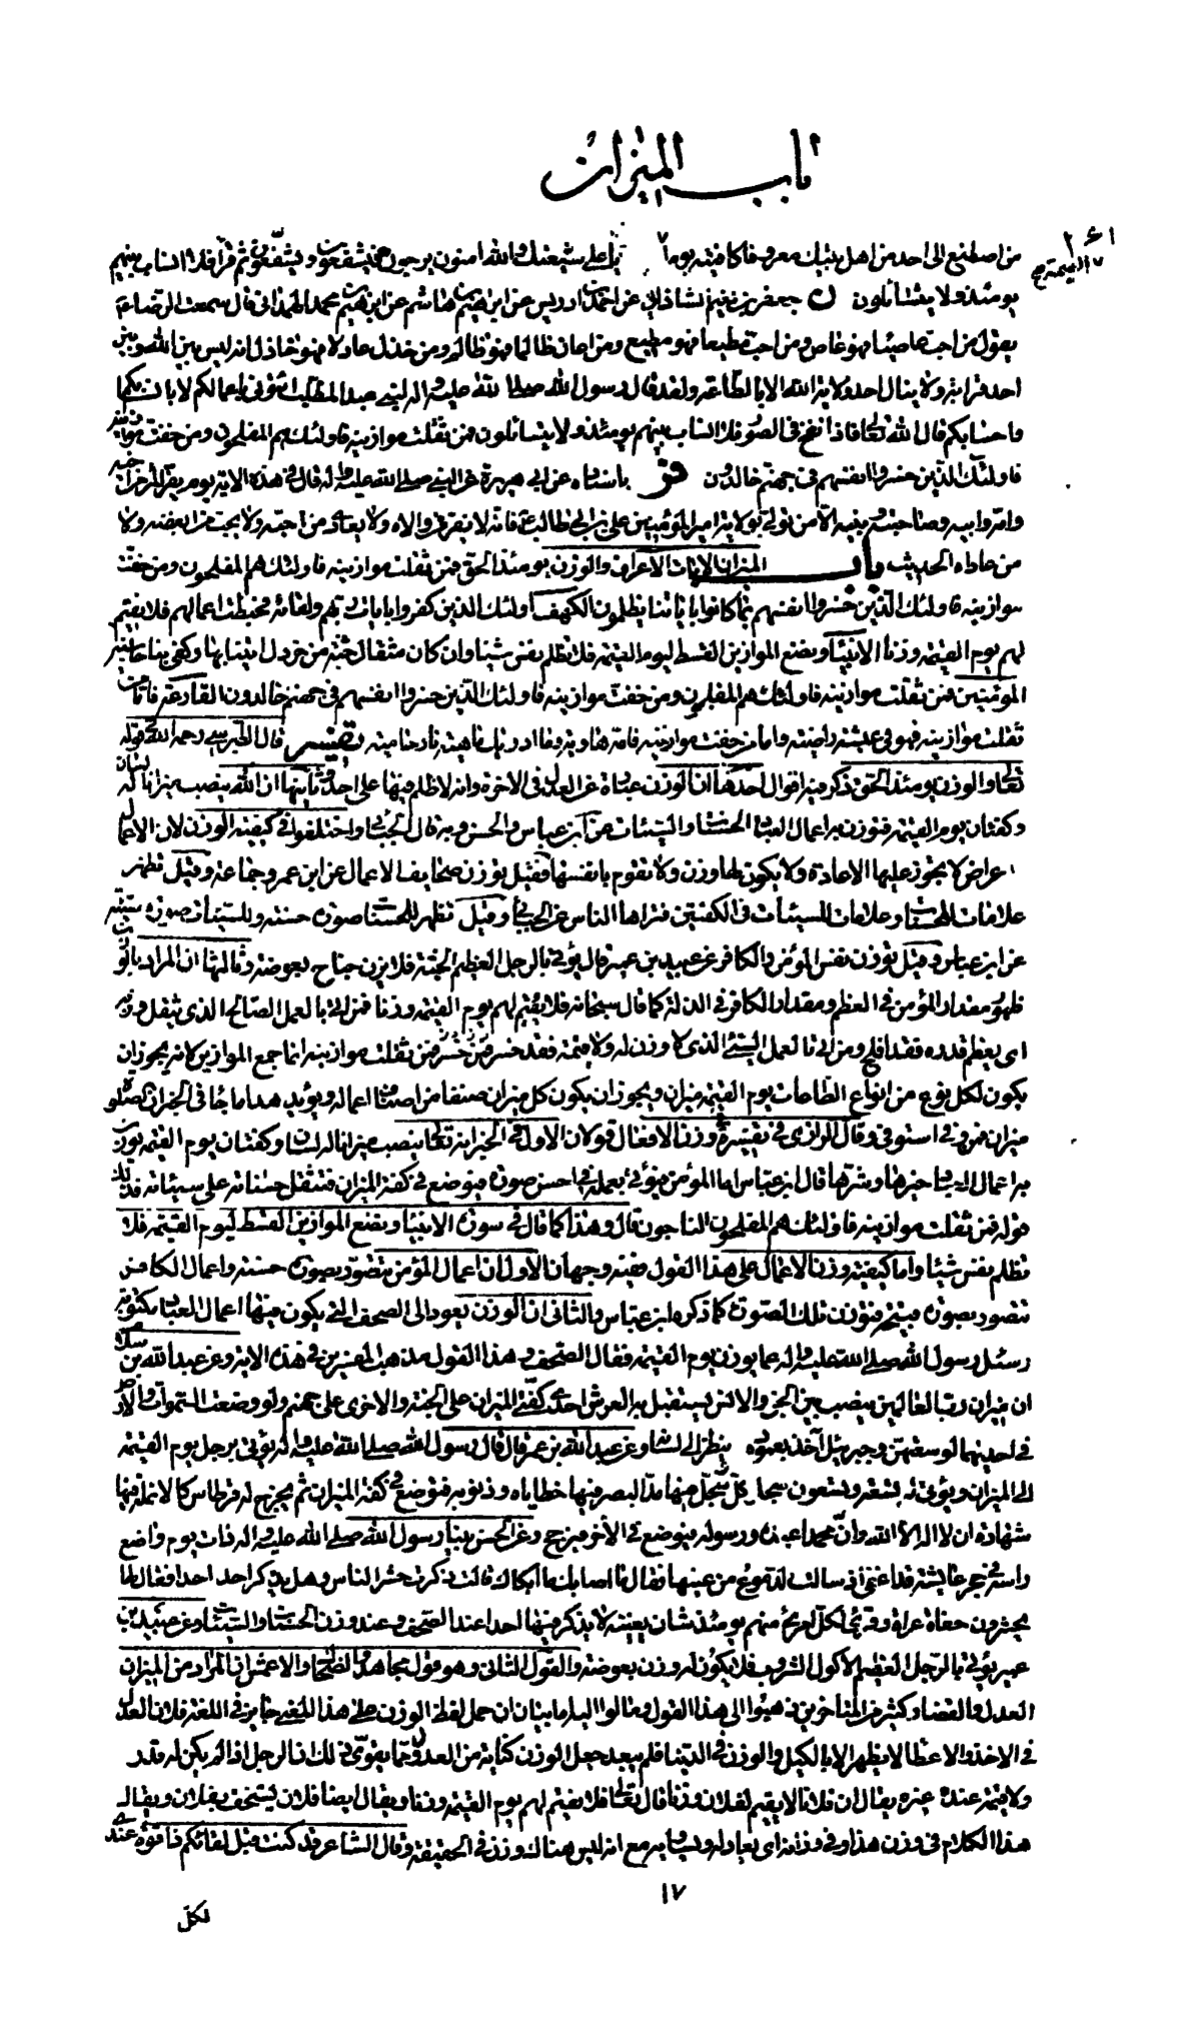 باب الميزان
من اصطنع الى احد من اهل بيتك معروفا كافيته يوم القيمة
يومئذ ولا يتسائلون ن جعفر بن نعيم الشاذانى عن احمد بن ادريس عن ابرهيم بن هاشم عن ابرهيم بن محمد الهمدانى قال سمعت الرضا ع
يقول من احب عاصيا فهو عاص ومن احب مطيعا فهو مطيع ومن اعان ظالما فهو ظالم ومن خذل عادلا فهو خاذل انه ليس بين الله وبين
احد قرابة ولا ينال احد ولاية الله الا بالطاعة ولقد قال رسول الله صلى الله عليه واله لبنى عبد المطلب ائتونى باعمالكم لا بانسابكم
واحسابكم قال الله تعالى فاذا نفخ فى الصور فلا انساب بينهم يومئذ ولا يتسائلون فمن ثقلت موازينه فاولئك هم المفلحون ومن خفت موازينه
فاولئك الذين خسروا انفسهم فى جهنم خالدون باسناده عن ابى هريرة عن النبى صلى الله عليه واله قال فى هذه الاية يوم يفر المرء من اخيه
وامه وابيه وصاحبته وبنيه الا من تولى بولاية امير المؤمنين على بن ابى طالب فانه لا يفر ممن والاه ولا يعادى من احبه ولا يحب من ابغضه ولا
من عاداه الحديث باب الميزان الايات الاعراف والوزن يومئذ الحق فمن ثقلت موازينه فاولئك هم المفلحون ومن خفت
موازينه فاولئك الذين خسروا انفسهم بما كانوا باياتنا يظلمون الكهف اولئك الذين كفروا بايات ربهم ولقائه فحبطت اعمالهم فلا نقيم
لهم يوم القيمة وزنا الانبيا ونضع الموازين القسط ليوم القيمة فلا تظلم نفس شيئا وان كان مثقال حبة من خردل اتينا بها وكفى بنا حاسبين
المؤمنين فمن ثقلت موازينه فاولئك هم المفلحون ومن خفت موازينه فاولئك الذين خسروا انفسهم فى جهنم خالدون القارعة فاما من
ثقلت موازينه فهو فى عيشة راضية واما من خفت موازينه فامه هاوية وما ادريك ماهيه نار حامية تفسير قال الطبرسى رحمه الله فى قوله
تعالى والوزن يومئذ الحق ذكر فيه اقوال احدها ان الوزن عبارة عن العدل فى الاخرة وانه لا ظلم فيها على احد وثانيها ان الله ينصب ميزانا له لسان
وكفتان يوم القيمة فتوزن به اعمال العباد الحسنات والسيئات عن ابن عباس والحسن وبه قال الجبائى واختلفوا فى كيفية الوزن لان الاعمال
اعراض لا يجوز عليها الاعادة ولا يكون لها وزن ولا تقوم بانفسها فقيل توزن صحايف الاعمال عن ابن عمر وجماعة وقيل تظهر
علامات للحسنات وعلامات للسيئات فى الكفتين فتراها الناس عن الجبائى وقيل تظهر للحسنات صورة حسنة وللسيئات صورة سيئة
عن ابن عباس وقيل توزن نفس المؤمن والكافر عن عبيد بن عمير قال يؤتى بالرجل العظيم الجثة فلا يزن جناح بعوضة وثالثها ان المراد بالوزن
ظهور مقدار المؤمن فى العظم ومقدار الكافر فى الذلة كما قال سبحانه فلا نقيم لهم يوم القيمة وزنا فمن اتى بالعمل الصالح الذى يثقل وزنه
اى يعظم قدره فقد افلح ومن اتى بالعمل السيئ الذى لا وزن له ولا قيمة فقد خسر فمن ثقلت موازينه انما جمع الموازين لانه يجوز ان
يكون لكل نوع من انواع الطاعات يوم القيمة ميزان ويجوز ان يكون كل ميزان صنفا من اصناف اعماله ويؤيد هذا ما جاء فى الخبر ان الصلوة
ميزان فمن وفى استوفى وقال الرازى فى تفسيره وزن الافعال قولان الاول فى الخبر انه تعالى ينصب ميزانا له لسان وكفتان يوم القيمة يوزن
به اعمال العباد خيرها وشرها قال ابن عباس اما المؤمن فيؤتى بعمله فى احسن صورة فيوضع فى كفة الميزان فتثقل حسناته على سيئاته فذلك
قوله فمن ثقلت موازينه فاولئك هم المفلحون الناجون قال وهذا كما قال فى سورة الانبيا ونضع الموازين القسط ليوم القيمة فلا
تظلم نفس شيئا واما كيفية وزن الاعمال على هذا القول ففيه وجهان الاول ان اعمال المؤمن تتصور بصورة حسنة واعمال الكافر
تتصور بصورة قبيحة فتوزن تلك الصورة كما ذكره ابن عباس والثانى ان الوزن يعود الى الصحف التى يكون فيها اعمال العباد مكتوبة
وسئل رسول الله صلى الله عليه واله عما يوزن يوم القيمة فقال الصحف وهذا القول مذهب المفسرين فى هذه الاية وعن عبد الله بن سلام
ان ميزان رب العالمين ينصب بين الجن والانس يستقبل به العرش احدى كفتى الميزان على الجنة والاخرى على جهنم ولو وضعت السموات والارض
فى احديهما لوسعتهن وجبرئيل آخذ بعموده ينظر الى لسانه وعن عبد الله بن عمر قال قال رسول الله صلى الله عليه واله يؤتى برجل يوم القيمة
الى الميزان ويؤتى له بتسعة وتسعون سجلا كل سجل منها مد البصر فيها خطاياه وذنوبه فتوضع فى كفة الميزان ثم يخرج له قرطاس كالانملة فيها
شهادة ان لا اله الا الله وان محمدا عبده ورسوله فيوضع فى الاخرى فترجح وعن الحسن بينا رسول الله صلى الله عليه واله ذات يوم واضع
راسه فى حجر عايشة قد اغفى اذ سالت الدموع من عينها فقال ما اصابك ما ابكاك قالت ذكرت حشر الناس وهل يذكر احد احدا فقال لها
يحشرون حفاة عراة وقرأ لكل امرئ منهم يومئذ شان يغنيه لا يذكر فيها احد احدا عند الصحف وعند وزن الحسنات والسيئات وعن عبيد بن
عمير يؤتى بالرجل العظيم الاكول الشروب فلا يكون له وزن بعوضة والقول الثانى وهو قول مجاهد والضحاك والاعمش ان المراد من الميزان
العدل والقضاء وكثير من المتاخرين ذهبوا الى هذا القول ومالوا اليه اما بيان ان حمل لفظ الوزن على هذا المعنى جايز فى اللغة فلان العدل
فى الاخذ والاعطا لا يظهر الا بالكيل والوزن فى الدنيا فلم يبعد جعل الوزن كناية من العدل ومما يقوى ذلك ان الرجل اذا لم يكن له قدر
ولا قيمة عند غيره يقال ان فلانا لا يقيم لفلان وزنا قال تعالى فلا نقيم لهم يوم القيمة وزنا ويقال ايضا فلان يستخف بفلان ويقال
هذا الكلام فى وزن هذا وفى وزانه اى يعادله ويساويه مع انه ليس هناك وزن فى الحقيقة وقال الشاعر قد كنت قبل لقائكم ذا قوة عندى
١٧
لكل